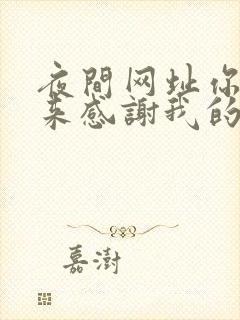 夜間网址你
来感謝我的
嘉澍